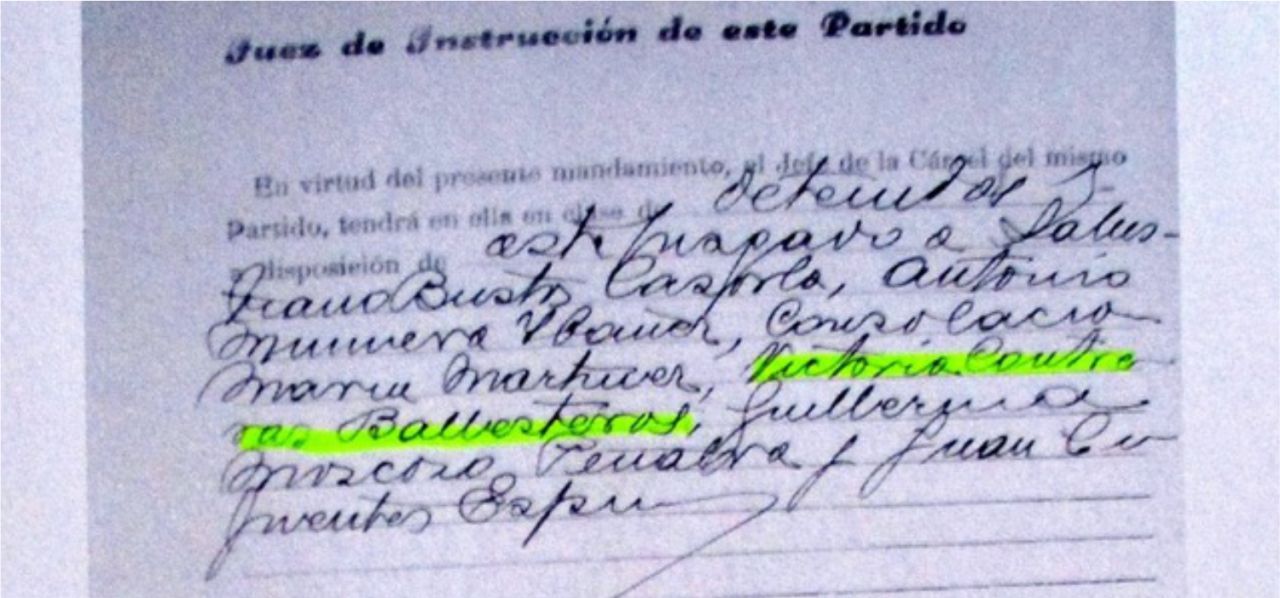 Juez de Instrucción de este Partido
En virtud del presente mandamiento, el Jefe de la Cárcel del mismo
Partido, tendrá en ella en clase de detenidos
a disposición de este Juzgado a Salus-
tiano Busto Casorla, Antonio
Munuera Ibañez, Consolacio
Maria Martinez, Victoria Contre
ras Ballesteros, Guillermina
Moscoso Penalva y Juan Ci
fuentes